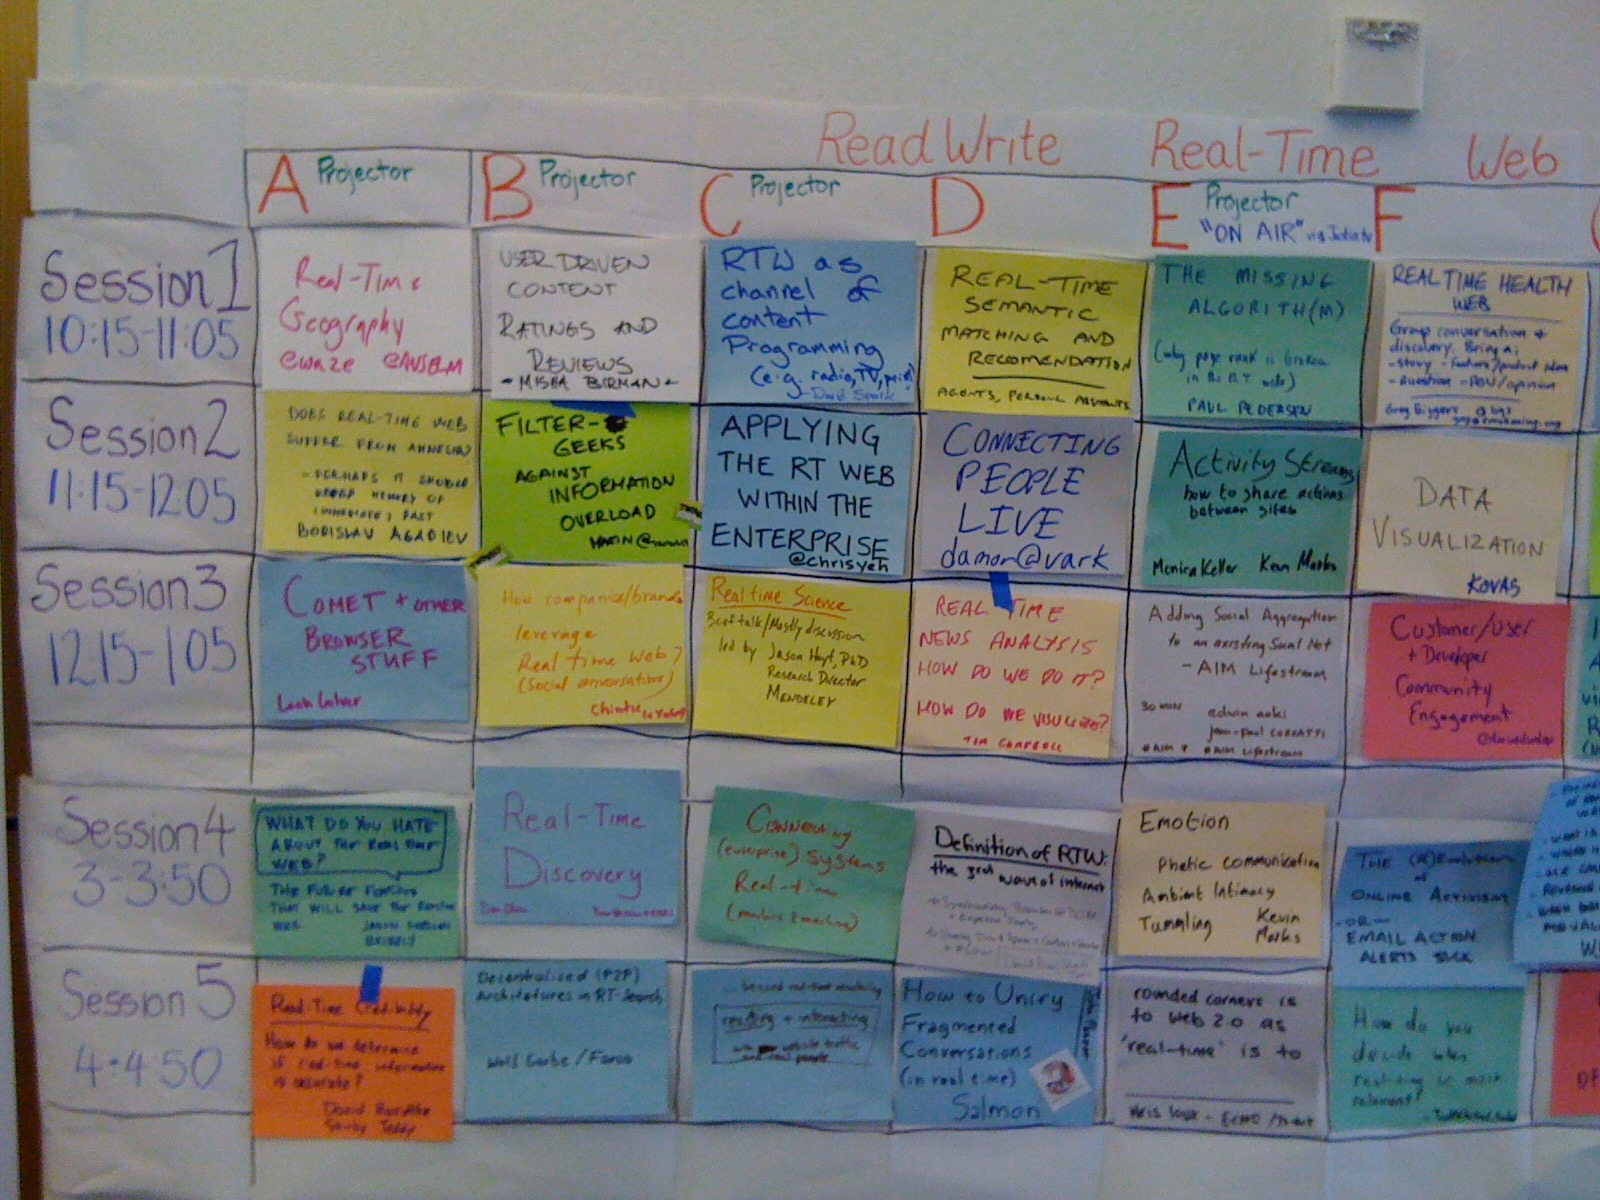 ReadWrite Real-Time Web
A Projector
B Projector
C Projector
D
E Projector
"ON AIR" via
F
Session 1
10:15-11:05
Real-Time
Geography
@waze @ANSELM
USER DRIVEN
CONTENT
RATINGS AND
REVIEWS
- MISHA BIRMAN -
RTW as
channel of
content
Programming
(e.g. radio, TV, print)
REAL-TIME
SEMANTIC
MATCHING AND
RECOMENDATION
AGENTS, PERSONAL ASSISTANTS
THE MISSING
ALGORITH(M)
(why page rank is broken
in the RT web)
PAUL PEDERSEN
REAL TIME HEALTH
WEB
Group conversation +
discovery. Bring a:
- story - feature/product idea
- question - POV/opinion
Greg Biggers
Session 2
11:15-12:05
DOES REAL-TIME WEB
SUFFER FROM AMNESIA?
- PERHAPS IT SHOULD
KEEP MEMORY OF
(IMMEDIATE) PAST
BORISLAV AGADIEV
FILTER-
GEEKS
AGAINST
INFORMATION
OVERLOAD
APPLYING
THE RT WEB
WITHIN THE
ENTERPRISE
@chrisyeh
CONNECTING
PEOPLE
LIVE
damon@vark
Activity Streams
how to share actions
between sites
Monica Keller Kevin Marks
DATA
VISUALIZATION
KOVAS
Session 3
12:15-1:05
COMET + OTHER
BROWSER
STUFF
How companies/brands
leverage
Real time Web?
(Social conversations)
Real-time Science
Brief talk/Mostly discussion
led by Jason Hoyt, PhD
Research Director
MENDELEY
REAL TIME
NEWS ANALYSIS
HOW DO WE DO IT?
HOW DO WE VISUALIZE?
TIM CAMPBELL
Adding Social Aggregation
to an existing Social Net
- AIM Lifestream
30 MIN edwin aoki
jean-paul
# AIM # AIM Lifestream
Customer/User
+ Developer
Community
Engagement
Session 4
3-3:50
WHAT DO YOU HATE
ABOUT THE REAL TIME
WEB?
THE FUTURE
THAT WILL SAVE THE REALTIME
WEB
Real-Time
Discovery
Connecting
(enterprise) systems
Real-time
(machine 2 machine)
Definition of RTW:
the 3rd wave of internet
Emotion
Phatic communication
Ambient Intimacy
Tummling Kevin
Marks
THE (R)Evolution
of
ONLINE ACTIVISM
-OR-
EMAIL ACTION
ALERTS SUCK
Session 5
4-4:50
Real-Time Credibility
How do we determine
if real-time information
is accurate?
Decentralized (P2P)
Architectures in RT-Search
Wolf Garbe / Faroo
... beyond real-time monitoring
reacting + interacting
with website traffic
and real people
How to Unify
Fragmented
Conversations
(in real time)
Salmon
John Panzer
rounded corners is
to web 2.0 as
'real-time' is to
How do you
decide when
real-time is most
relevant?